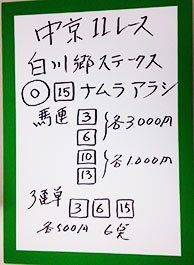 中京11レース
白川郷ステークス
◎ 15 ナムラアラシ
馬連 3
6
各3000円
10
13
各1.000円
3連単
3 6 15
各500円 6点